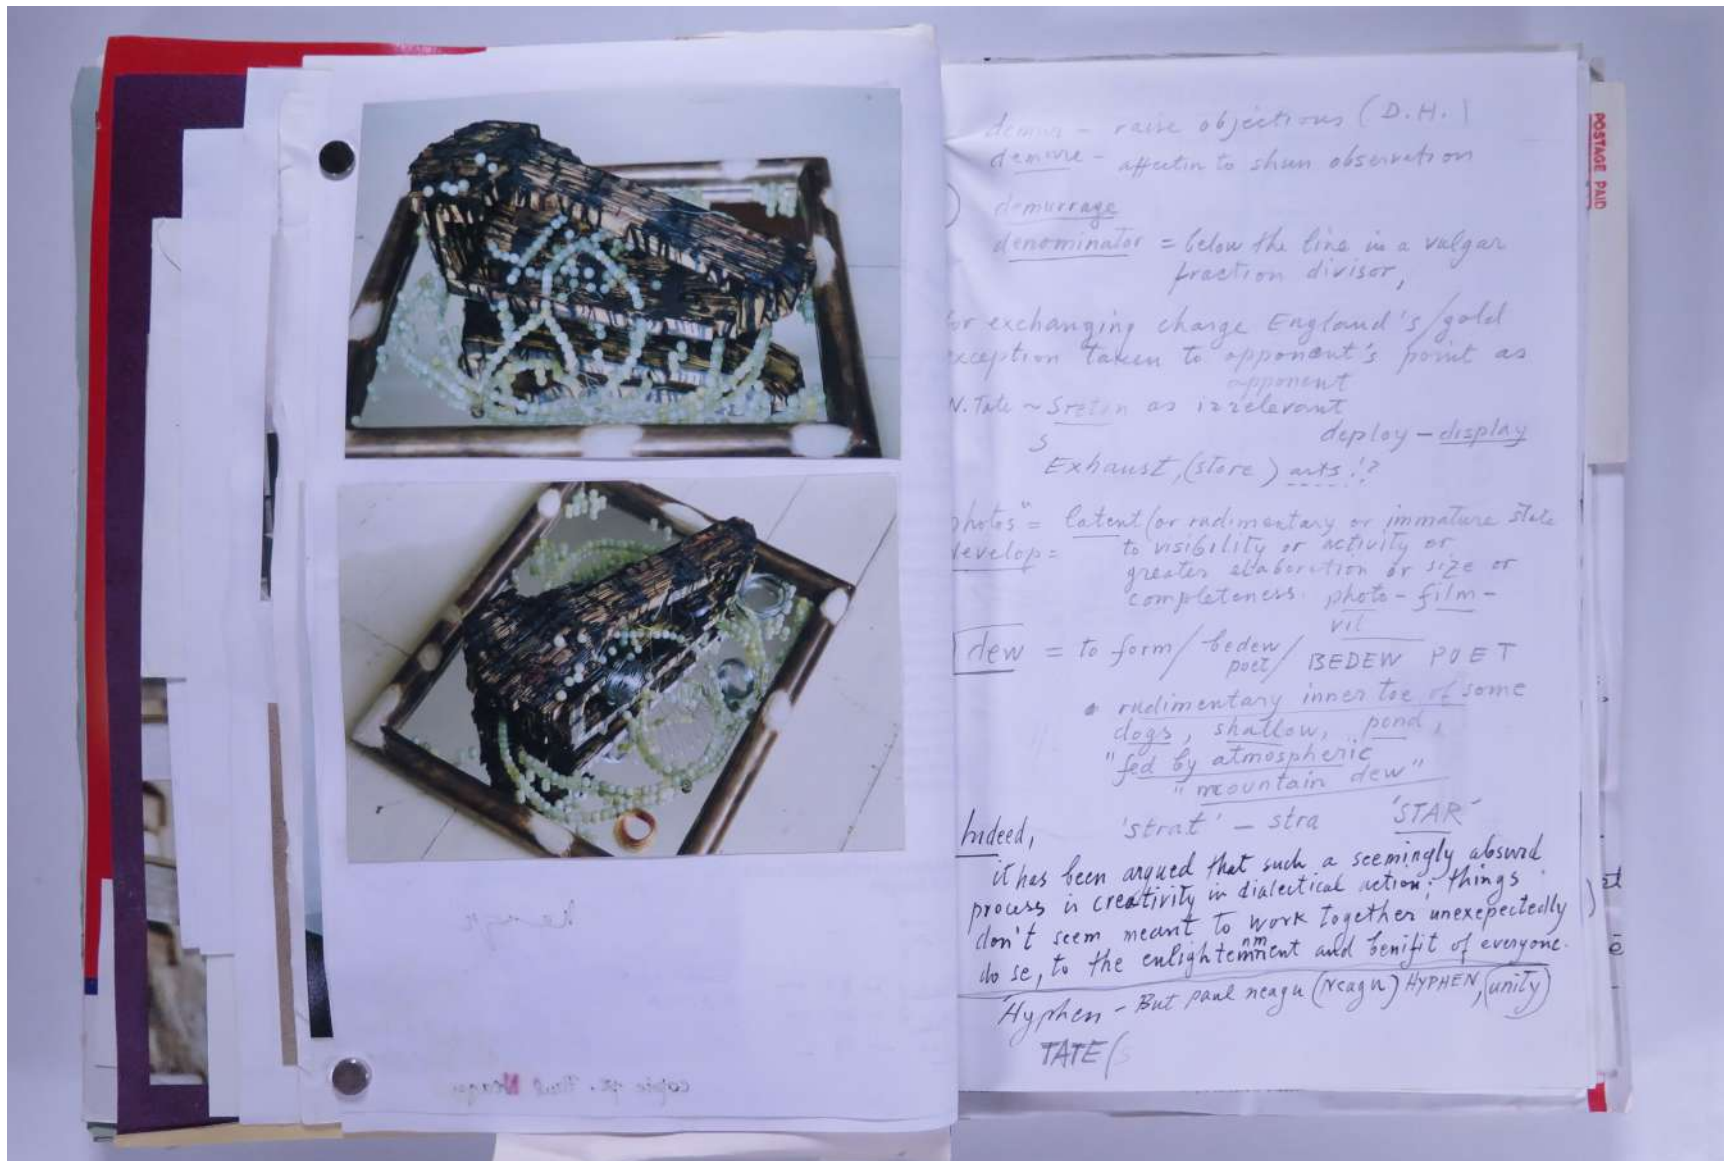 demur - raise objections (D.H.)
demure - affectin to shun observation
demurrage
denominator = below the line in a vulgar
fraction divisor,
or exchanging charge England's/gold
xception taken to opponent's point as
opponent
N. Tate ~ as irrelevant
deploy - display
S
Exhaust, (store) arts!?
photos" = latent (or rudimentary or immature state
develop = to visibility or activity or
greater elaboration or size or
completeness. photo - film -
vil
dew = to form / bedew / BEDEW POET
poet
• rudimentary inner toe of some
dogs, shallow, pond,
"fed by atmospheric
"mountain dew"
'strat' - stra 'STAR'
Indeed,
it has been argued that such a seemingly absurd
process is creativity in dialectical action; things
don't seem meant to work together unexepectedly
do se, to the enlightenment and benifit of everyone.
Hyphen - But paul neagu (Neagu) HYPHEN, (unity)
TATE (s
POSTAGE PAID
copie pt. Paul Neagu